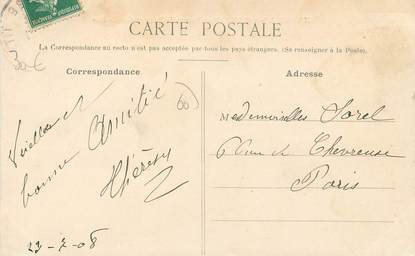 CARTE POSTALE
La Correspondance au recto n'est pas acceptée par tous les pays étrangers. (Se renseigner à la Poste).
Correspondance
Adresse
bonne Amitié
Thérèse
23-7-08
Mademoiselles Sorel
6 Rue de Chevreuse
Paris
60